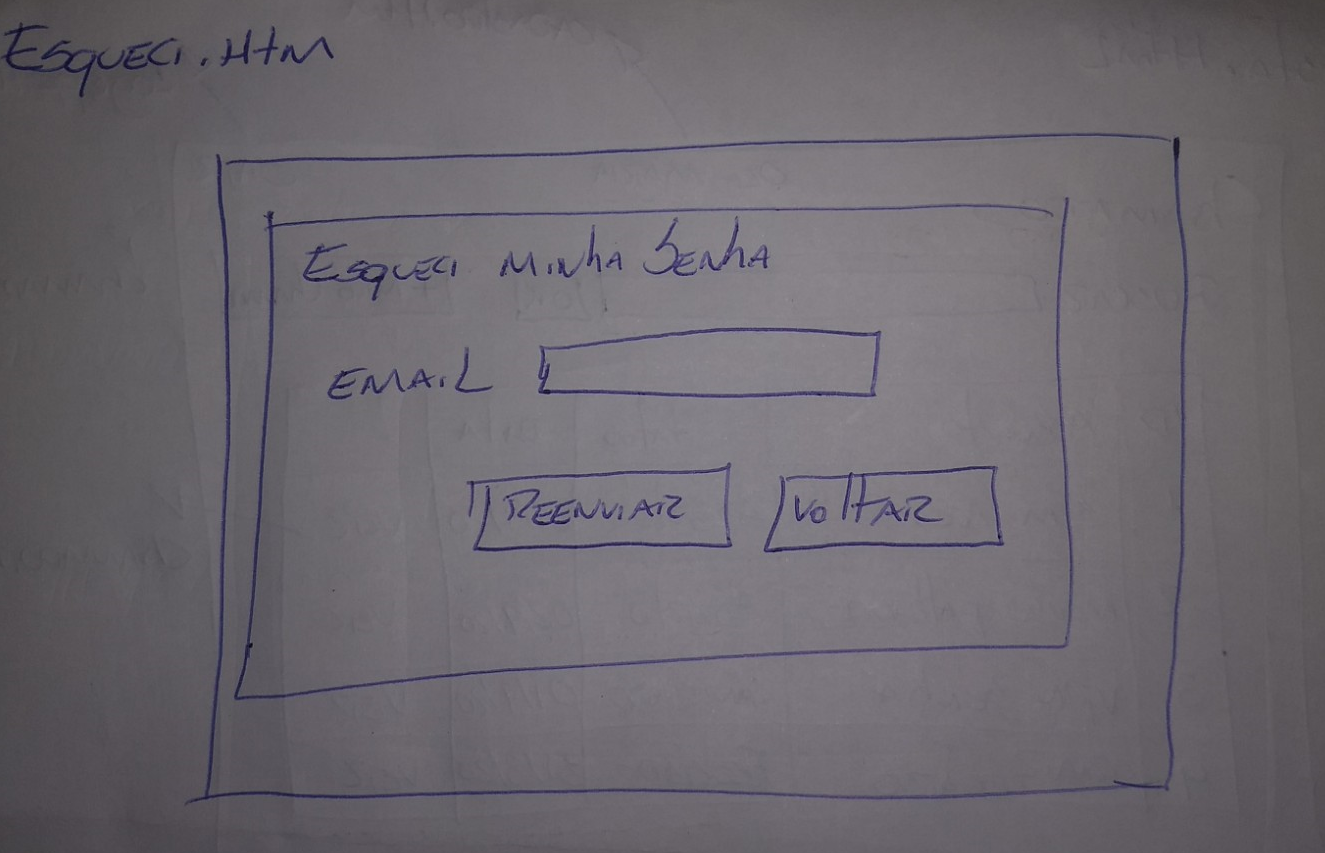 Esqueci.Htm
Esqueci minha Senha
Email
Reenviar Voltar